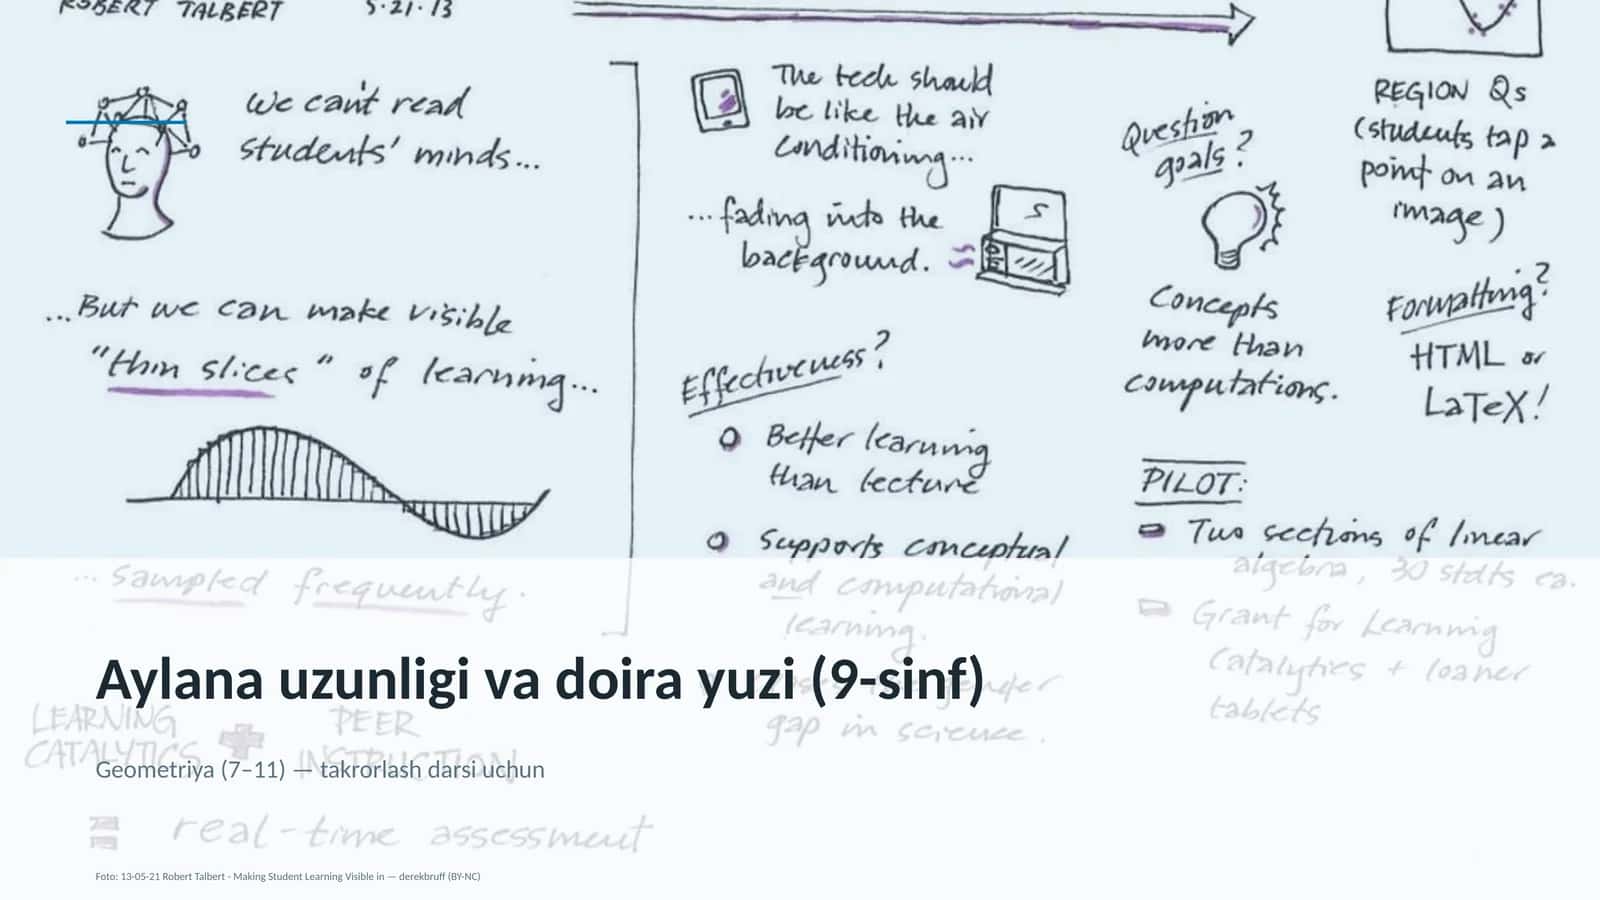 ROBERT TALBERT 5·21·13
We can't read
students' minds...
...But we can make visible
"thin slices" of learning...
... sampled frequently.
LEARNING
CATALYTICS
PEER
INSTRUCTION
real-time assessment
The tech should
be like the air
conditioning...
...fading into the
background.
Effectiveness?
Better learning
than lecture
Supports conceptual
and computational
learning.
gender
gap in science.
Question
goals?
Concepts
more than
computations.
REGION Qs
(students tap a
point on an
image)
Formatting?
HTML or
LaTeX!
PILOT:
Two sections of linear
algebra, 30 stdts ea.
Grant for Learning
Catalytics + loaner
tablets
Aylana uzunligi va doira yuzi (9-sinf)
Geometriya (7–11) — takrorlash darsi uchun
Foto: 13-05-21 Robert Talbert - Making Student Learning Visible in — derekbruff (BY-NC)